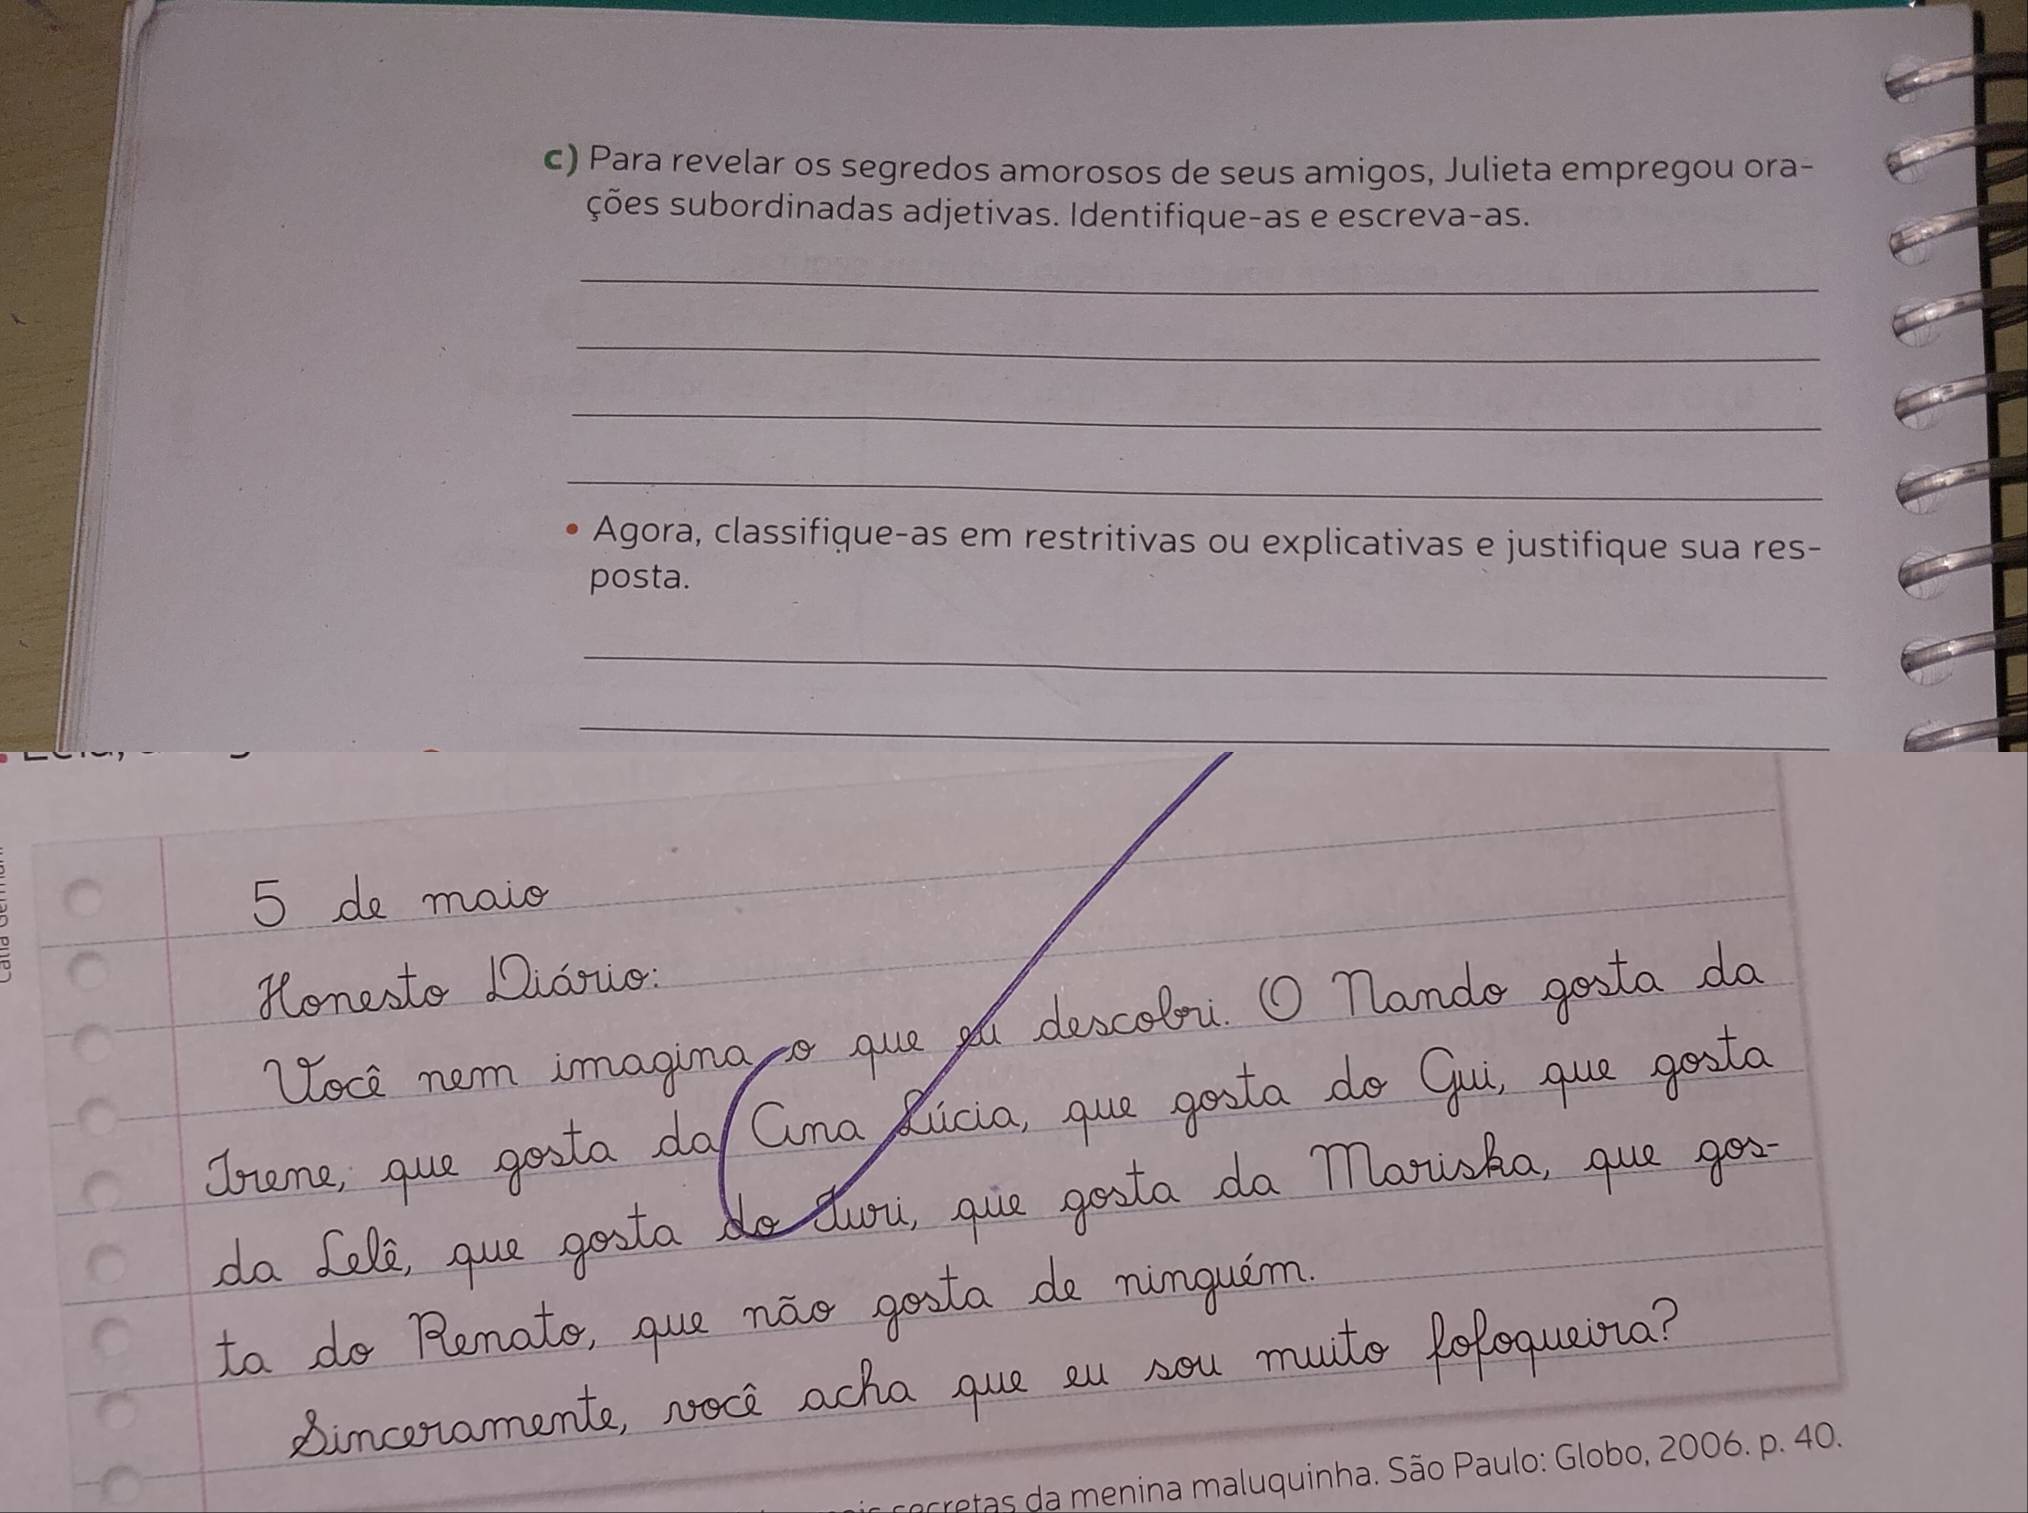 c) Para revelar os segredos amorosos de seus amigos, Julieta empregou ora-
ções subordinadas adjetivas. Identifique-as e escreva-as.
• Agora, classifique-as em restritivas ou explicativas e justifique sua res-
posta.
5 de maio
Honesto Diário:
Você nem imagina o que eu descobri. O Nando gosta da
Irene, que gosta da Ana Lúcia, que gosta do Gui, que gosta
da Lelê, que gosta do Juri, que gosta da Mariska, que gos-
ta do Renato, que não gosta de ninguém.
Sinceramente, você acha que eu sou muito fofoqueira?
secretas da menina maluquinha. São Paulo: Globo, 2006. p. 40.